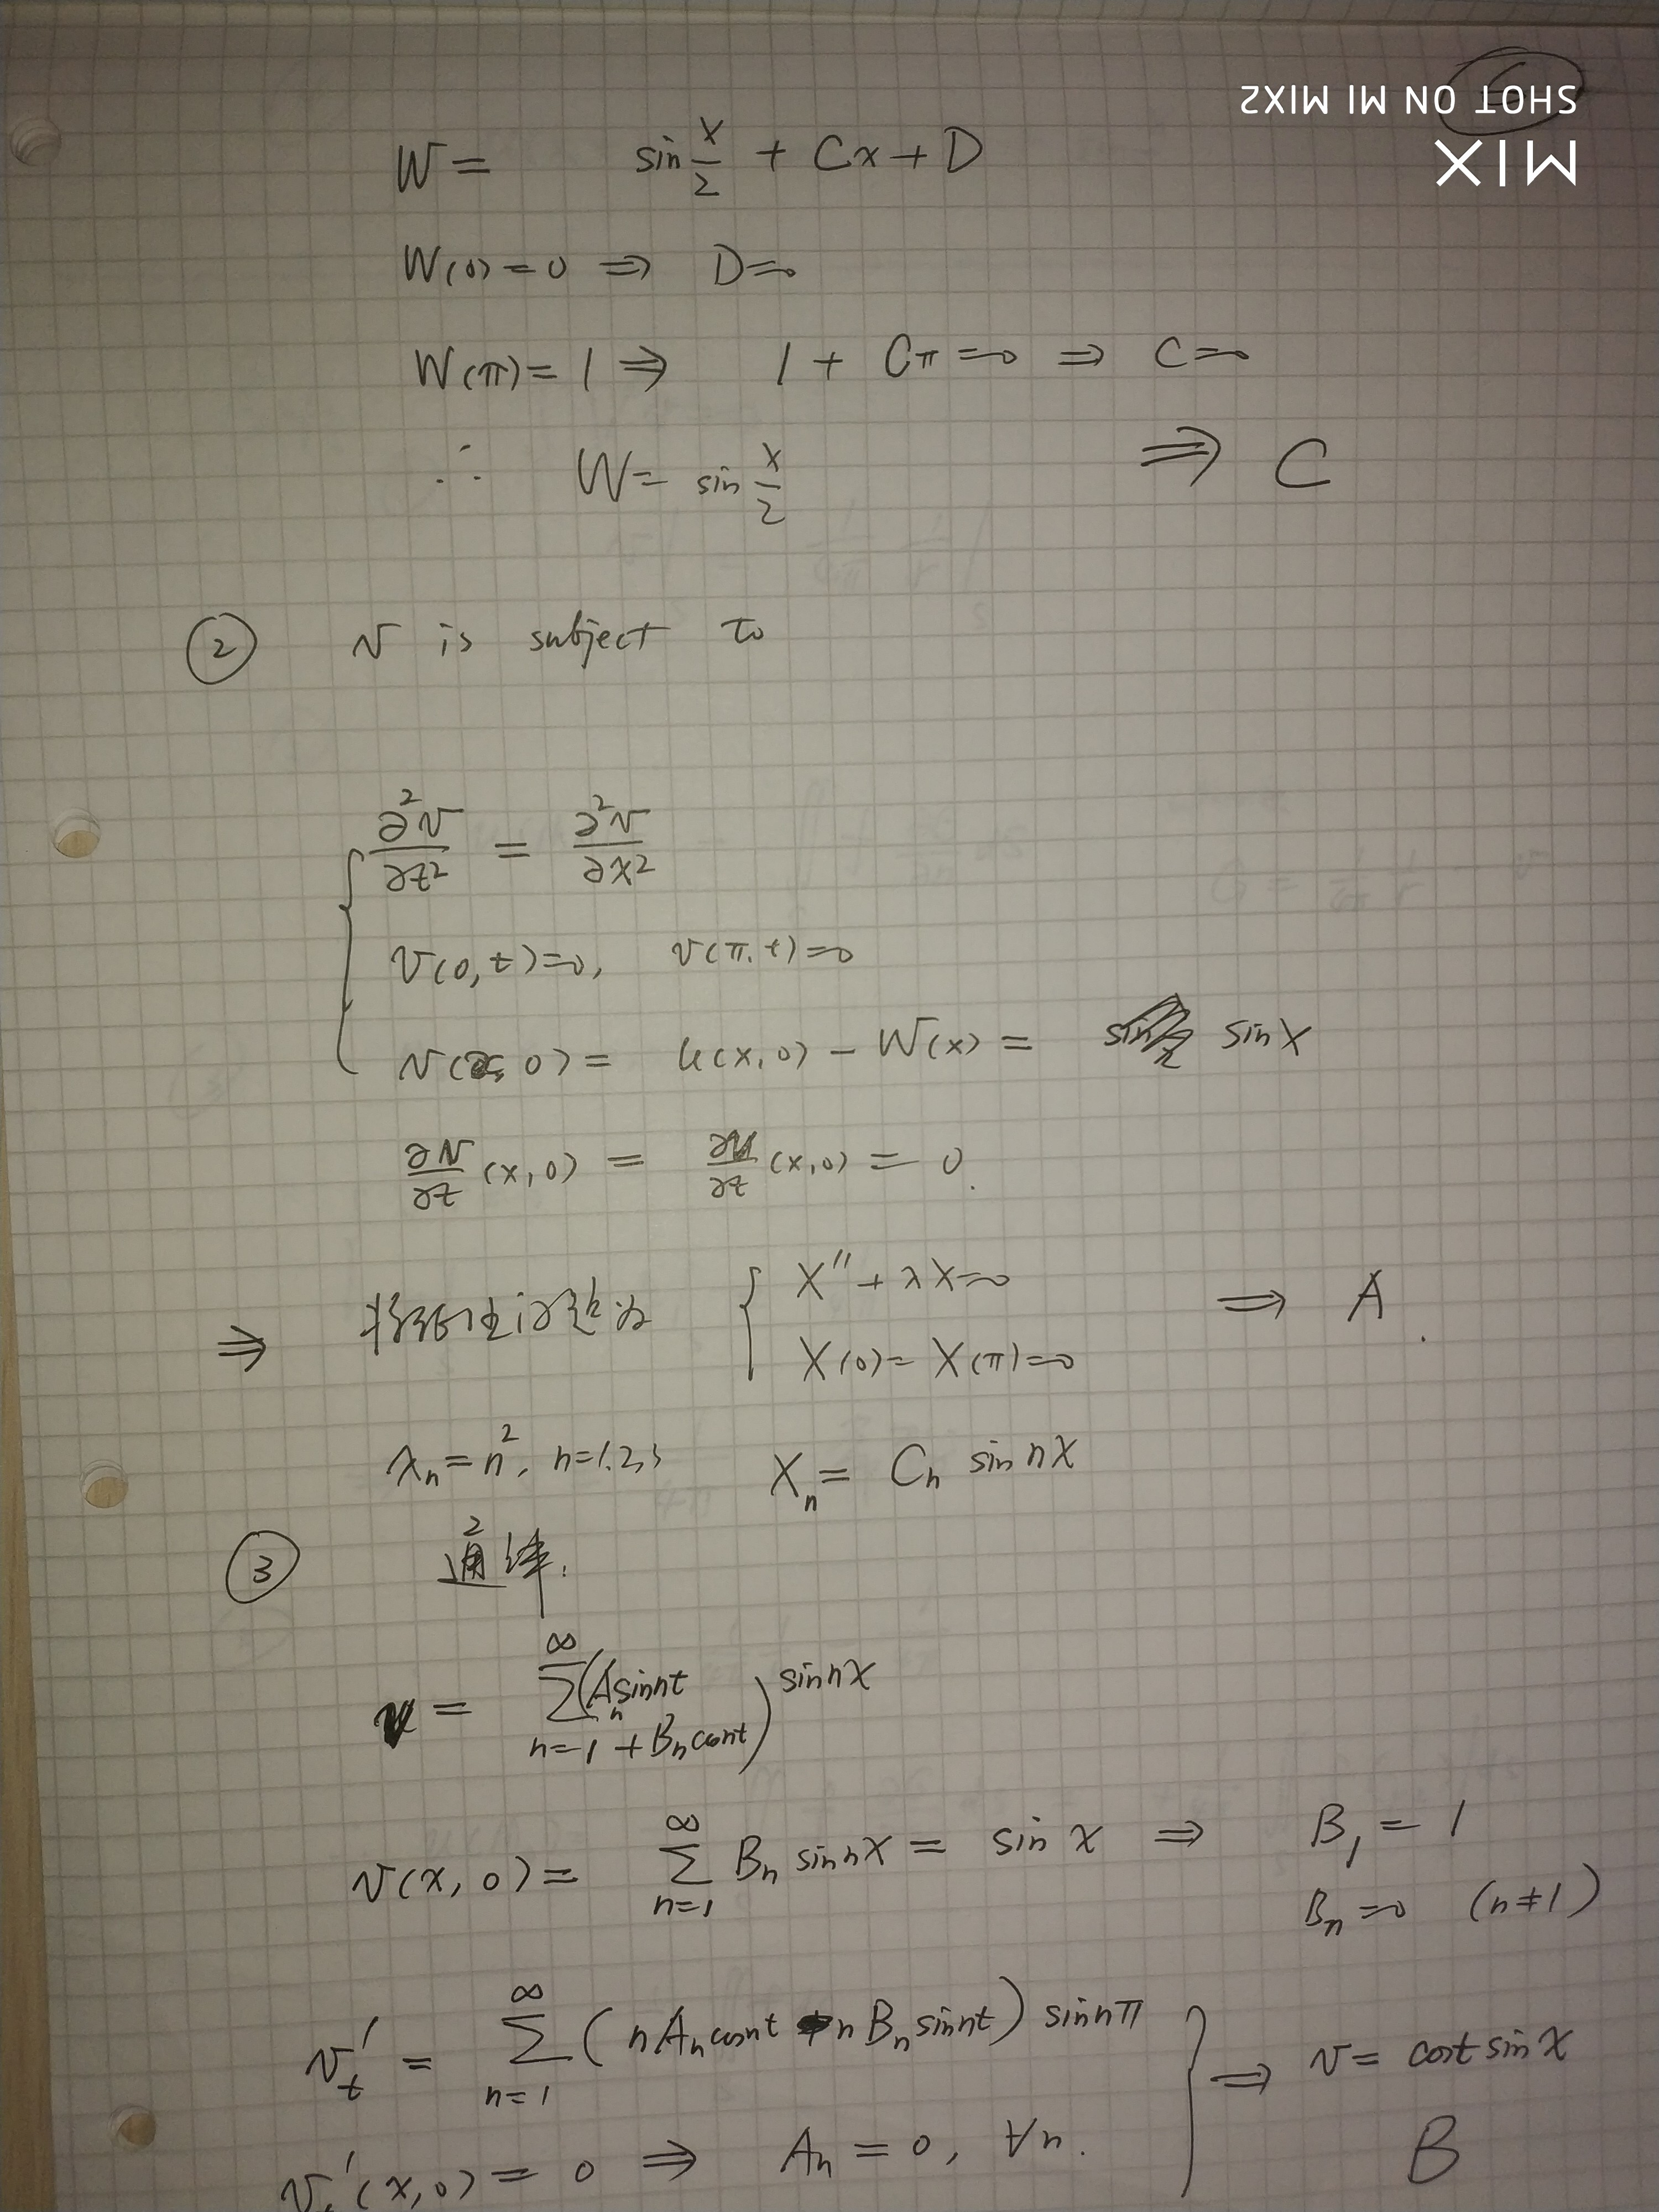 SHOT ON MI MIX2
MIX
W = sin x/2 + Cx + D
W(0) = 0 ⇒ D=0
W(π) = 1 ⇒ 1 + Cπ=0 ⇒ C=0
∴ W = sin x/2 ⇒ C
② v is subject to
∂²v/∂t² = ∂²v/∂x²
v(0,t)=0, v(π,t)=0
v(x,0) = u(x,0) - W(x) = sin x
∂v/∂t (x,0) = ∂u/∂t (x,0) = 0.
⇒ 特征值问题为 { X'' + λX=0 ⇒ A.
X(0) = X(π)=0
λn = n², n=1,2,3 Xn = Cn sin nx
③ 通解.
v = ∑ n=1 ∞ (An sin nt + Bn cos nt) sin nx
v(x,0) = ∑ n=1 ∞ Bn sin nx = sin x ⇒ B1 = 1
Bn=0 (n≠1)
v't = ∑ n=1 ∞ (n An cos nt - n Bn sin nt) sin nπ
⇒ v = cost sin x
v't(x,0) = 0 ⇒ An = 0, ∀n.
B